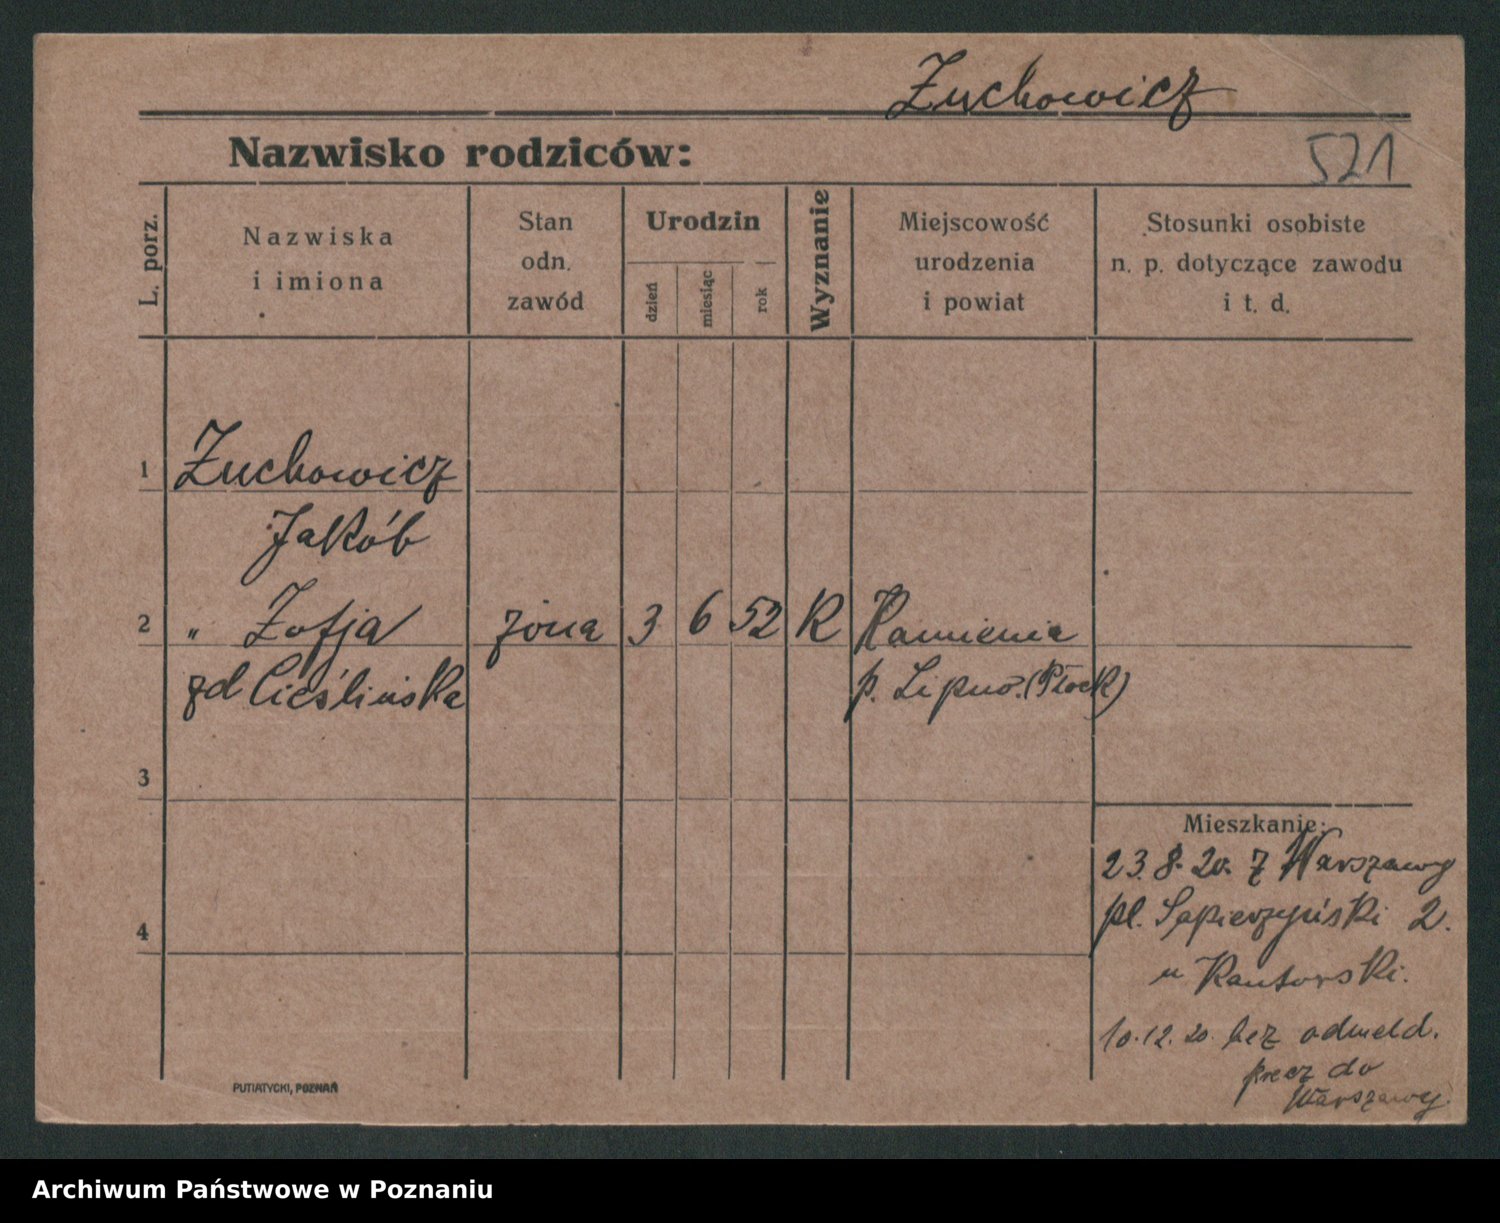 Zuchowicz
Nazwisko rodziców:
521
L. porz.
Nazwiska
i imiona
Stan
odn.
zawód
Urodzin
dzień
miesiąc
rok
Wyznanie
Miejscowość
urodzenia
i powiat
Stosunki osobiste
n. p. dotyczące zawodu
i t. d.
1 Zuchowicz
Jakób
2 " Zofja żona 3 6 52 R Kamienia
zd Cieślińska p. Lipno. (Płock)
3
Mieszkanie:
23. 8. 20. z Warszawy
pl. Sapieżyński 2.
4
u Kantorski.
10.12.20. bez odmeld.
precz do
Warszawy.
PUTIATYCKI, POZNAŃ
Archiwum Państwowe w Poznaniu